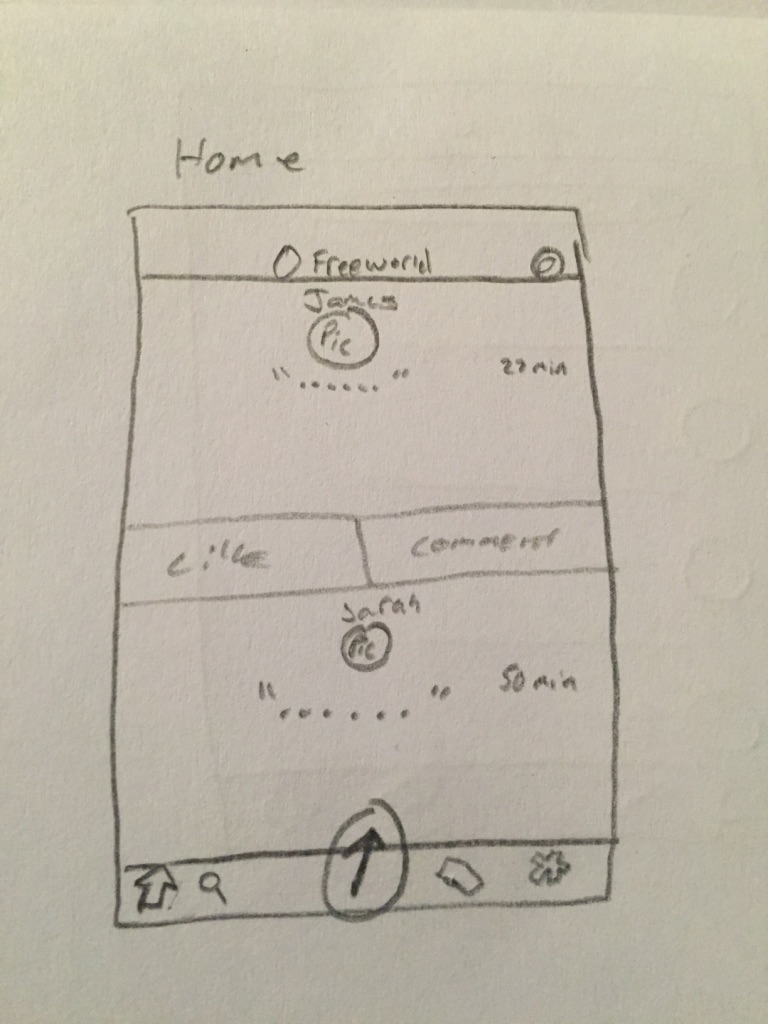 Home
Freeworld
James
Pic
" ...... "
27 min
Like
Comment
Sarah
Pic
" ...... "
50 min